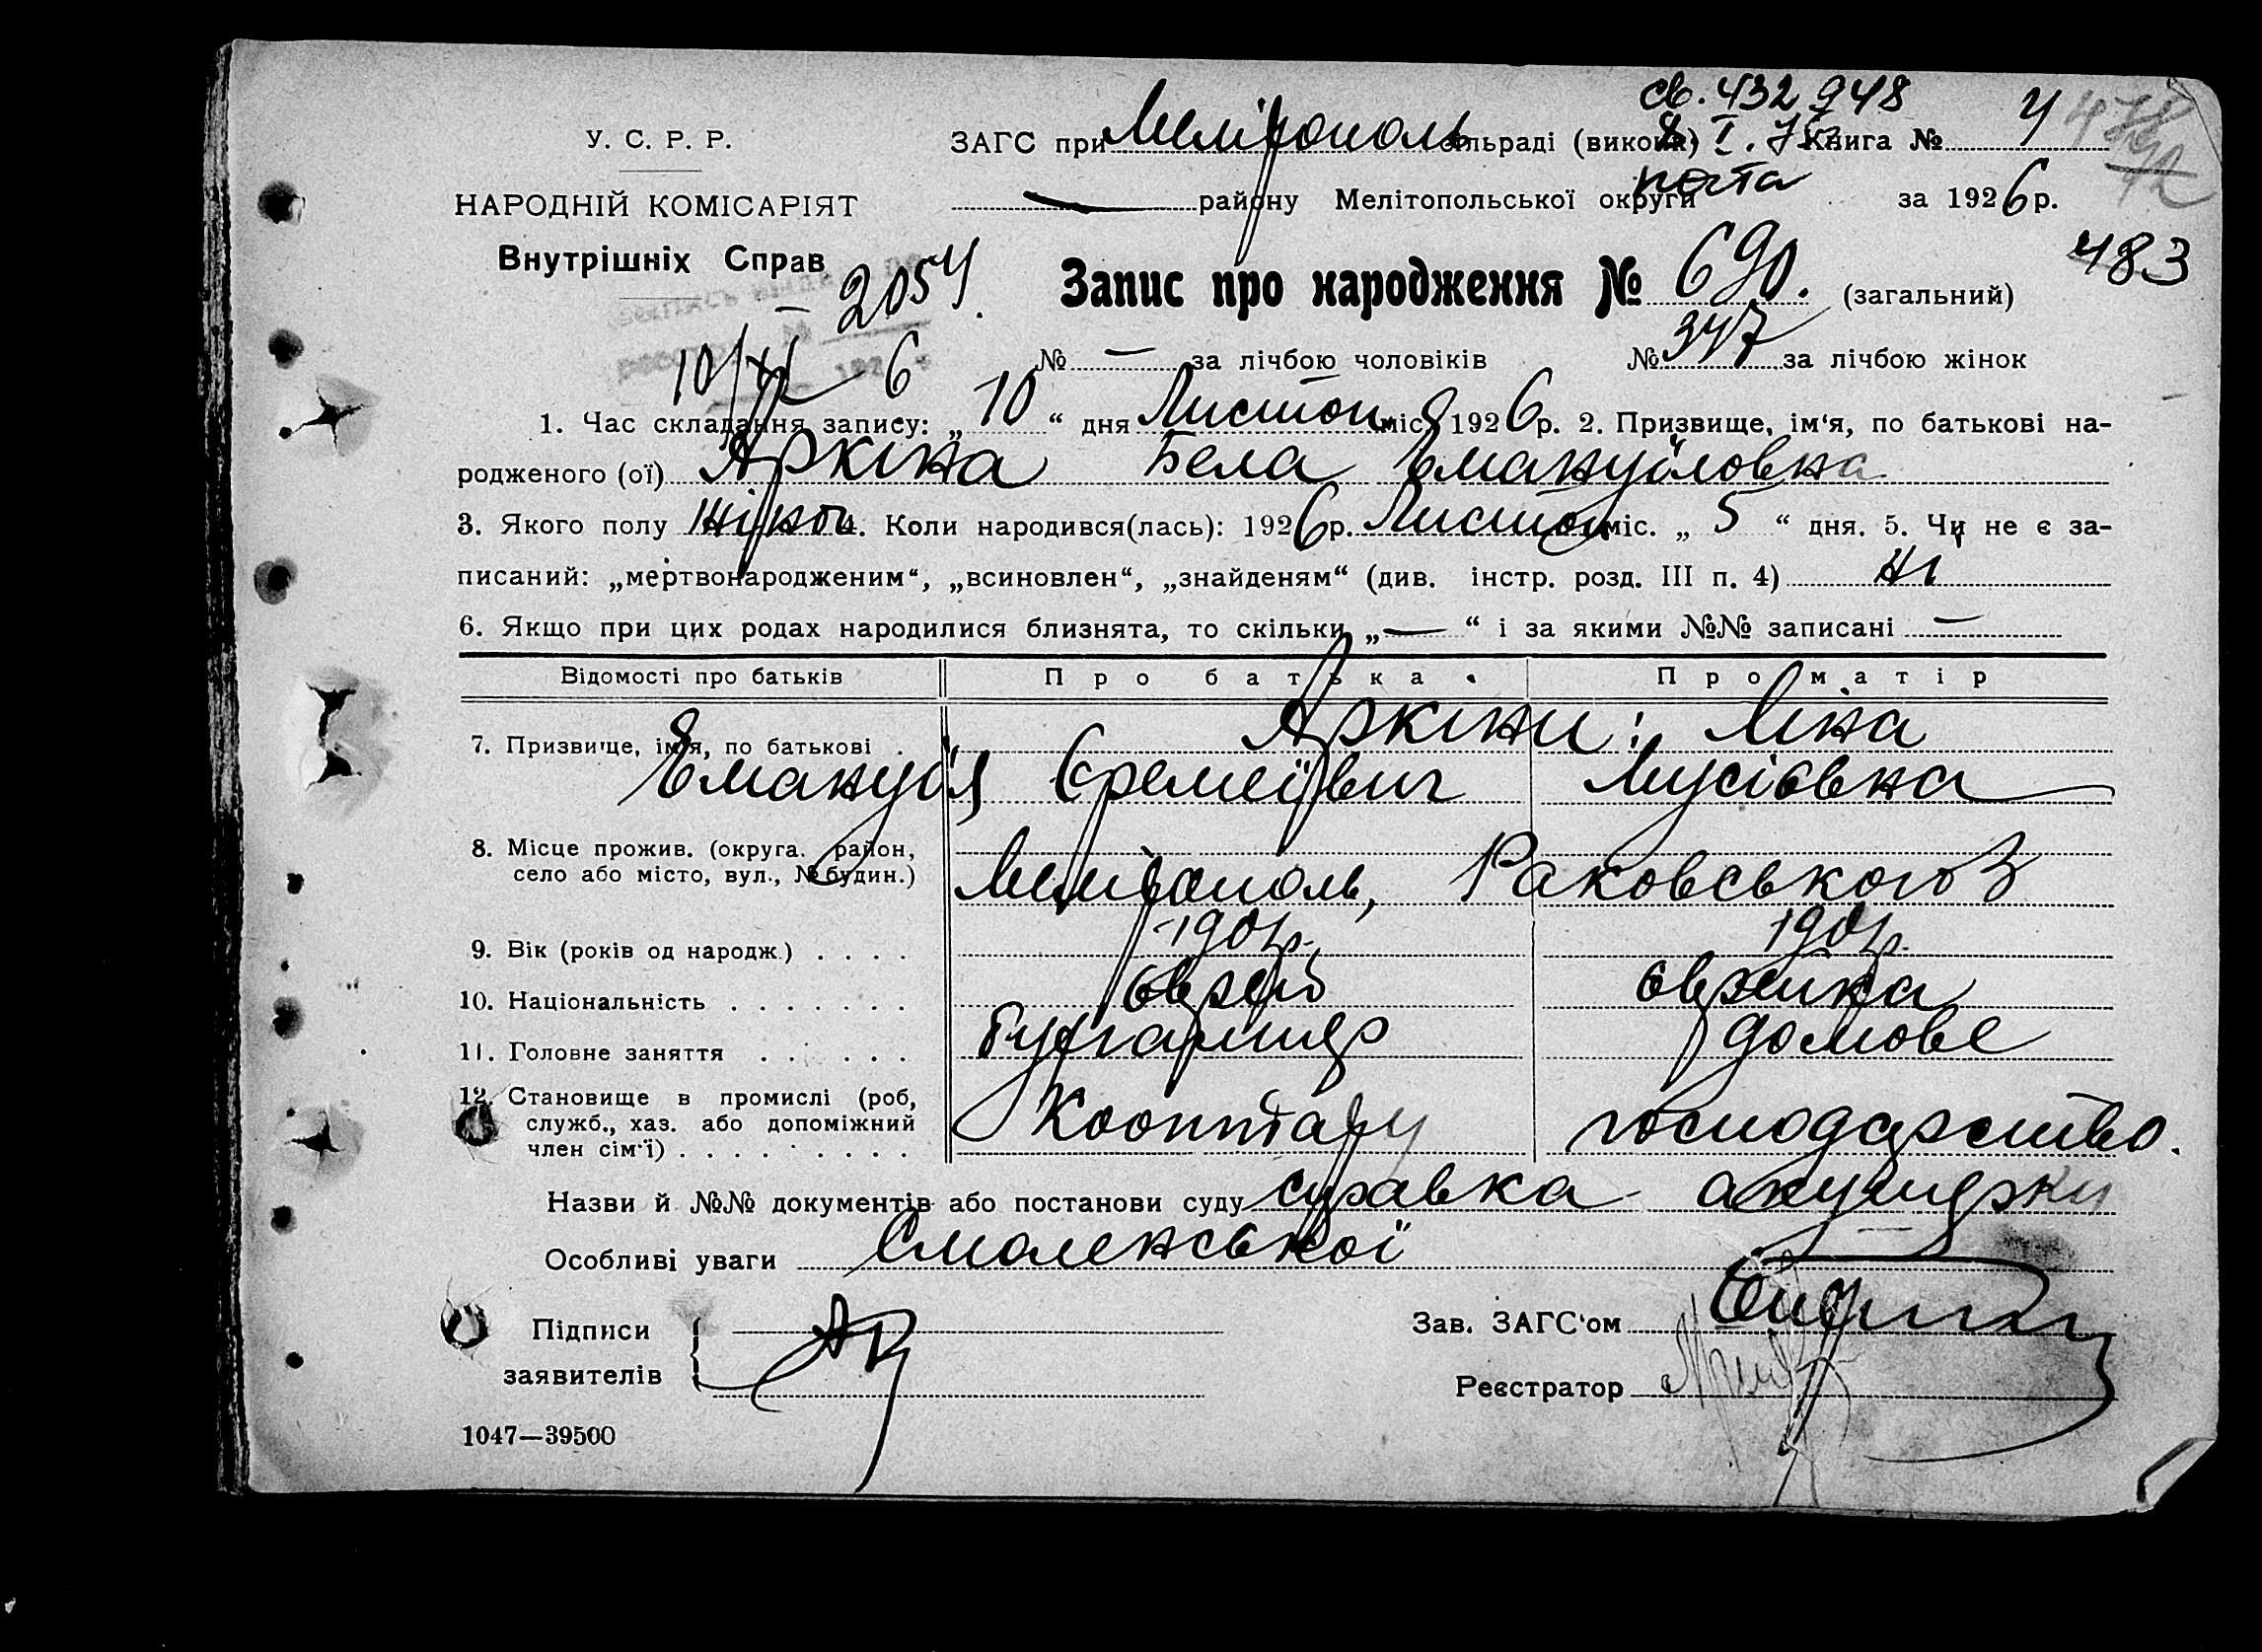 св. 432948
У. С. Р. Р. ЗАГС при Мелітополь сільраді (викон.) Книга № 4
8 І.
НАРОДНІЙ КОМІСАРІЯТ — району Мелітопольської округи за 1926 р.
пошта
Внутрішніх Справ 483
2054. Запис про народження № 690. (загальний)
10/XI 6 № — за лічбою чоловіків № 347 за лічбою жінок
1. Час складання запису: „10“ дня Листоп міс 1926 р. 2. Призвище, ім‘я, по батькові на-
родженого (ої) Аркіна Бела Емануїловна
3. Якого полу жіноч 4. Коли народився(лась): 1926 р. Листоп міс. „5“ дня. 5. Чи не є за-
писаний: „мертвонародженим“, „всиновлен“, „знайденям“ (див. інстр. розд. III п. 4) Ні
6. Якщо при цих родах народилися близнята, то скільки „—“ і за якими №№ записані —
Відомості про батьків Про батька Про матір
Аркіни: Ліна
7. Призвище, ім‘я, по батькові .
Емануїл Єремеївич Мусіївна
8. Місце прожив. (округа. район,
село або місто, вул., № будин.) Мелітополь, Раковського 3
9. Вік (років од народж.) . . . . 1901р. 1901р.
10. Національність . . . . . . . єврей єврейка
11. Головне заняття . . . . . . бухгалтер домове
12. Становище в промислі (роб,
служб., хаз. або допоміжний Кооптару господарство.
член сім‘ї) . . . . . . . . .
Назви й №№ документів або постанови суду справка акушерки
Особливі уваги Смоленської
Підписи Зав. ЗАГС‘ом
заявителів Реєстратор
1047—39500